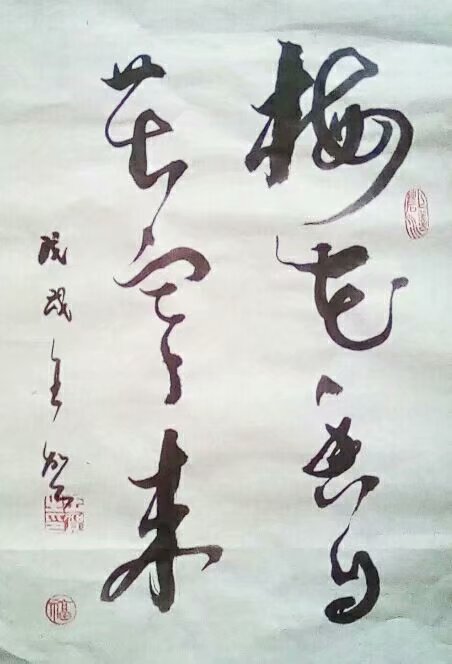 梅花香自
苦寒来
戊戌